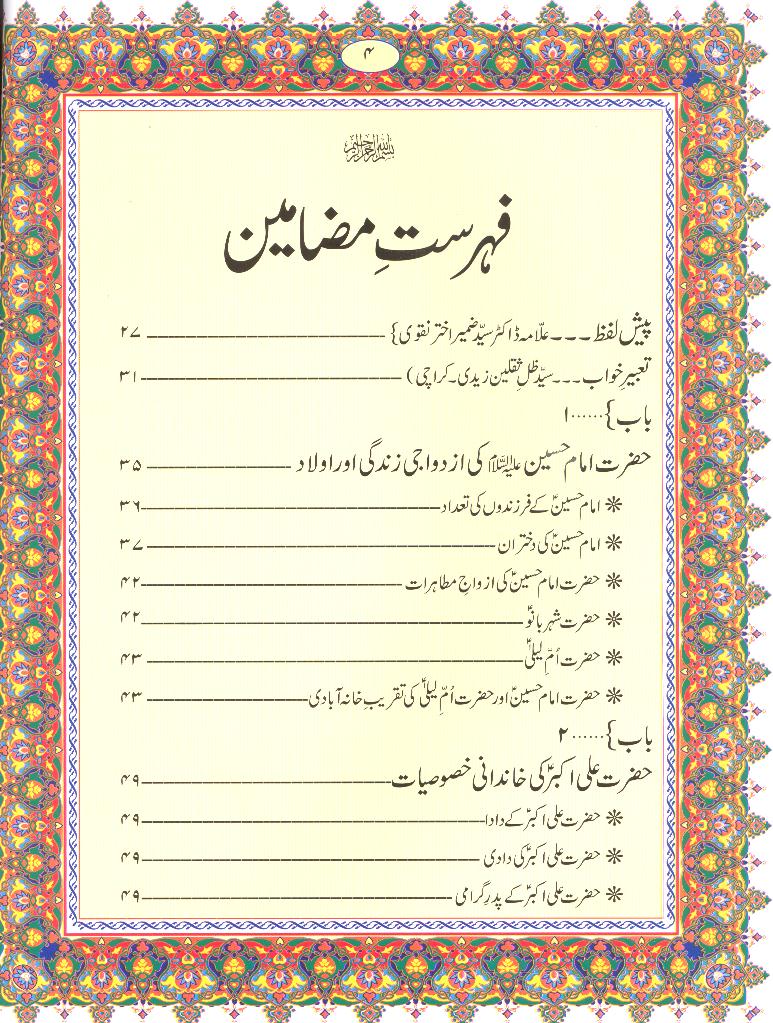 ۴
بسم اللہ الرحمن الرحیم
فہرستِ مضامین
پیش لفظ ۔۔۔ علّامہ ڈاکٹر سیّد ضمیر اختر نقوی} ۲۷
تعبیرِ خواب ۔۔۔ سیّد ظلِ ثقلین زیدی۔کراچی) ۳۱
باب}......۱
حضرت امام حسین علیہ السلام کی ازدواجی زندگی اور اولاد ۳۵
❋ امام حسینؑ کے فرزندوں کی تعداد ۳۶
❋ امام حسینؑ کی دختران ۳۷
❋ حضرت امام حسینؑ کی ازواجِ مطاہرات ۴۲
❋ حضرت شہر بانوؑ ۴۲
❋ حضرت اُمّ لیلیٰؑ ۴۳
❋ حضرت امام حسینؑ اور حضرت اُمّ لیلیٰؑ کی تقریبِ خانہ آبادی ۴۳
باب}......۲
حضرت علی اکبرؑ کی خاندانی خصوصیات ۴۹
❋ حضرت علی اکبرؑ کے دادا ۴۹
❋ حضرت علی اکبرؑ کی دادی ۴۹
❋ حضرت علی اکبرؑ کے پدرِ گرامی ۴۹